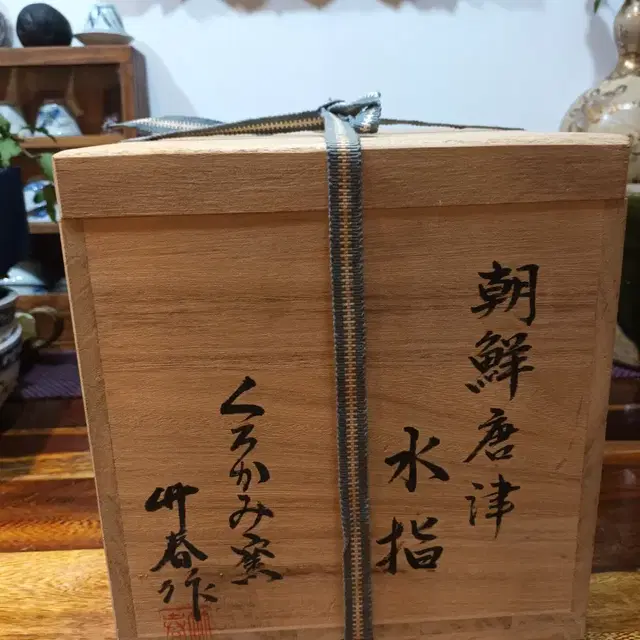 朝鮮唐津
水指
くろかみ窯
竹春作